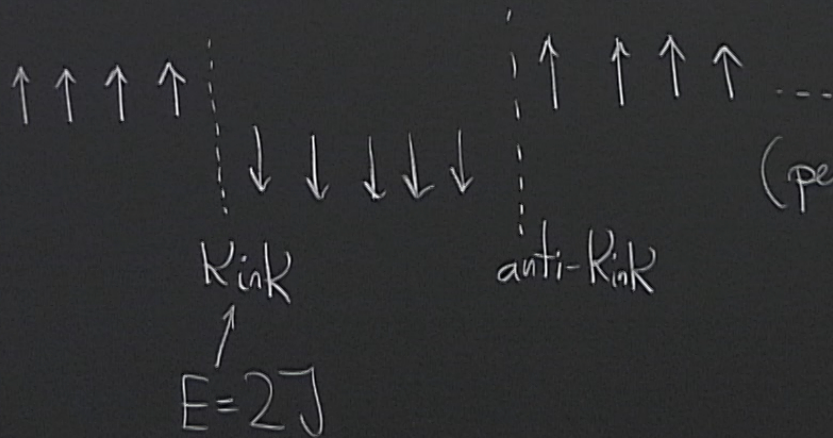 (pe
Kink anti-Kink
E=2J